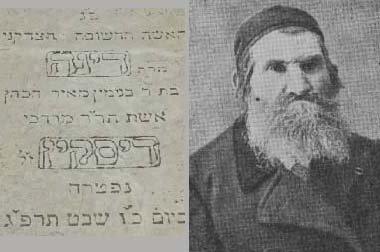 פ נ
האשה החשובה הצדקני
מרת דינה
בת ר בנימין מאיר הכהן
אשת הר"ר מרדכי
דיסקין
נפטרה
ביום כ"ו שבט תרפ"ג